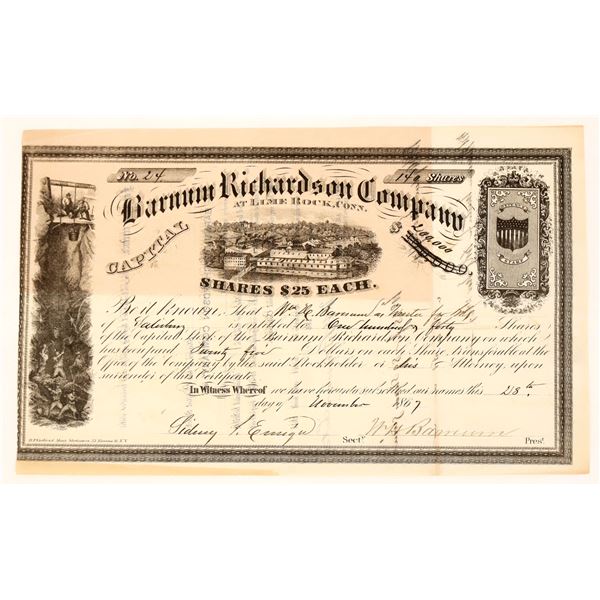 No. 24
140 Shares
Barnum Richardson Company
AT LIME ROCK, CONN.
CAPITAL
$
200,000
SHARES $25 EACH.
Be it Known. That Wm H. Barnum as Trustee for
of Salisbury is entitled to One hundred & forty Shares
of the Capital Stock of the Barnum Richardson Company on which
has been paid Twenty five Dollars on each Share Transferable at the
Office of the Company by the said Stockholder or his Attorney upon
surrender of this Certificate.
In Witness Whereof we have hereunto subscribed our names this 28th
day of November 1867
Sidney P. Ensign Secty.
W H Barnum Prest.